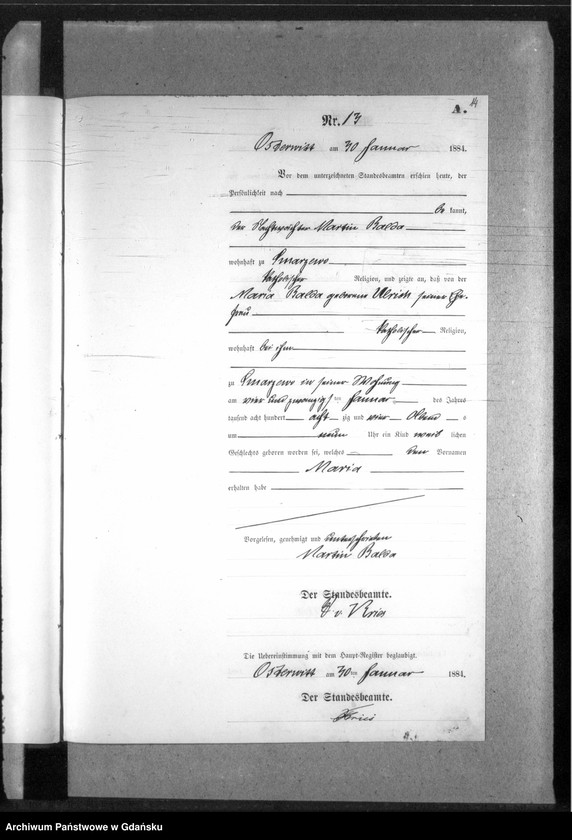 14
A.
Nr. 13
Osterwitt am 30 Januar 1884.
Vor dem unterzeichneten Standesbeamten erschien heute, der
Persönlichkeit nach
be kannt,
der Nachtwächter Martin Balda
wohnhaft zu Smarzewo
katholischer Religion, und zeigte an, daß von der
Maria Balda geborene Ulrich seiner Ehe-
frau
katholischer Religion,
wohnhaft bei ihm
zu Smarzewo in seiner Wohnung
am vier und zwanzigsten Januar des Jahres
tausend acht hundert acht zig und vier Abend s
um neun Uhr ein Kind weib lichen
Geschlechts geboren worden sei, welches den Vornamen
Maria
erhalten habe
Vorgelesen, genehmigt und unterschrieben
Martin Balda
Der Standesbeamte.
v. Kries
Die Uebereinstimmung mit dem Haupt-Register beglaubigt.
Osterwitt am 30ten Januar 1884.
Der Standesbeamte.
Kries
Archiwum Państwowe w Gdańsku